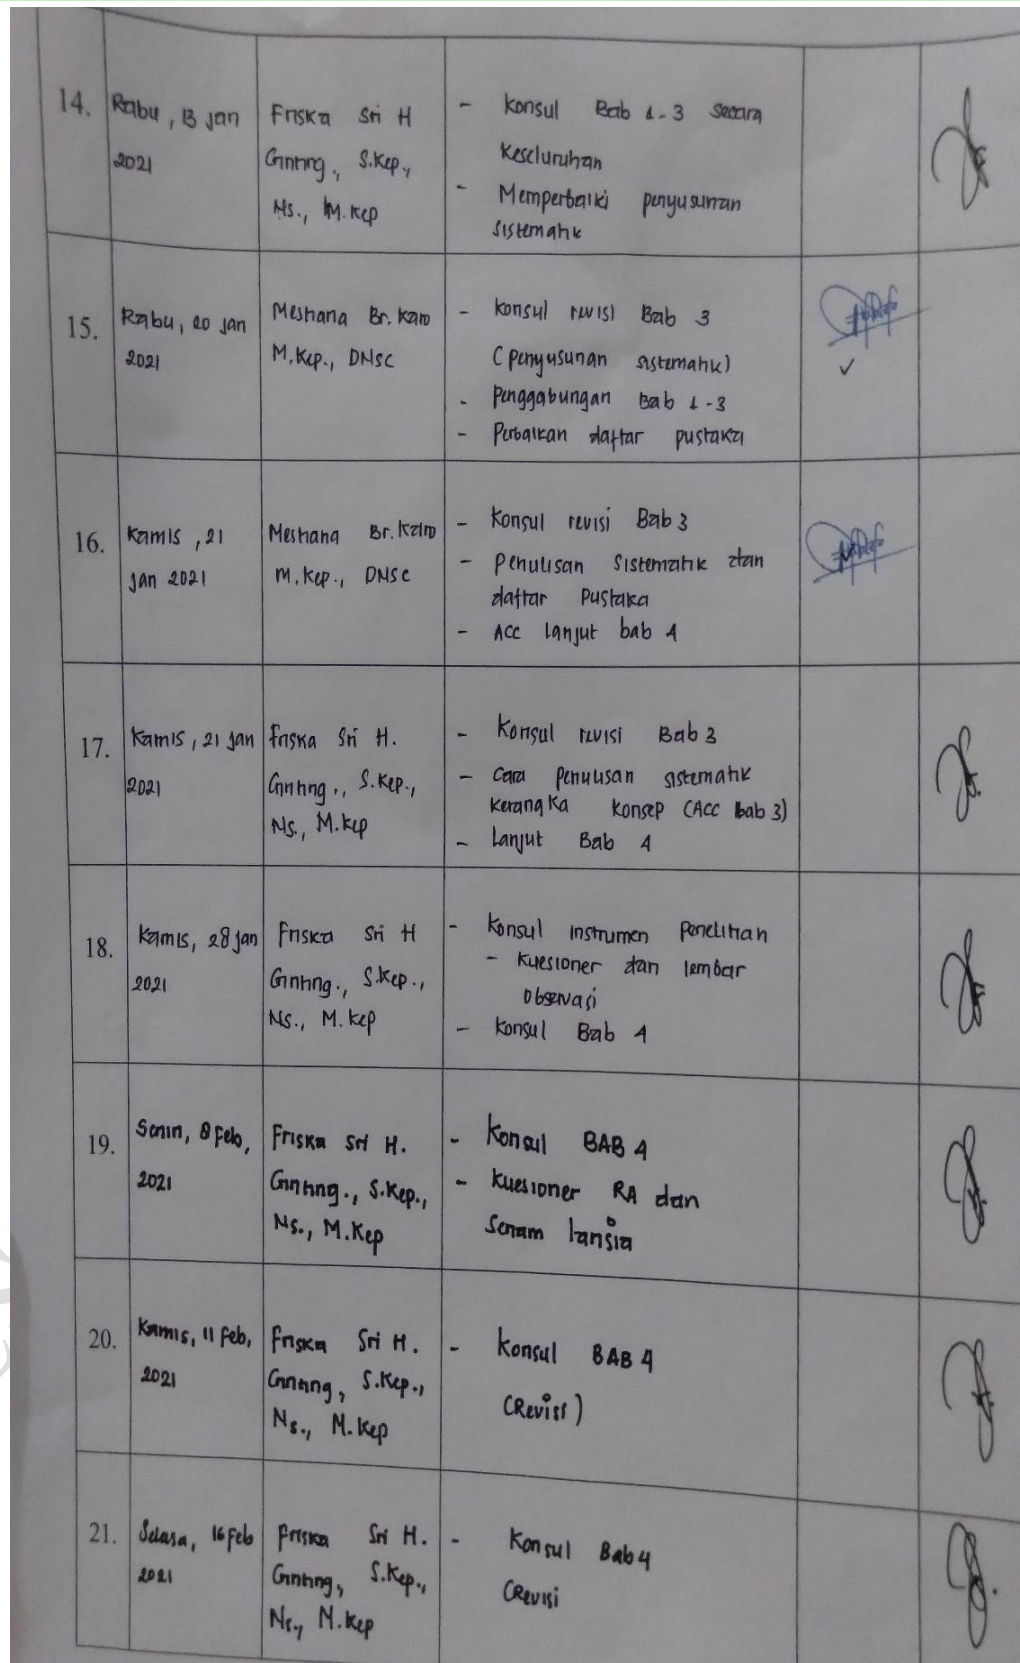 14. Rabu, 13 Jan 2021 Friska Sri H Ginting, S.Kep, Ns., M.Kep
- Konsul Bab 1-3 secara
keseluruhan
- Memperbaiki penyusunan
sistematik
15. Rabu, 20 Jan 2021 Mestiana Br. Karo M.Kep., DNSc
- Konsul revisi Bab 3
(penyusunan sistematik)
- Penggabungan Bab 1-3
- Perbaikan daftar pustaka
✓
16. Kamis, 21 Jan 2021 Mestiana Br. Karo M.Kep., DNSc
- Konsul revisi Bab 3
- Penulisan Sistematik dan
daftar Pustaka
- ACC lanjut bab 4
17. Kamis, 21 Jan 2021 Friska Sri H. Ginting., S.Kep., Ns., M.Kep
- Konsul revisi Bab 3
- Cara penulisan sistematik
kerangka konsep (ACC bab 3)
- Lanjut Bab 4
18. Kamis, 28 Jan 2021 Friska Sri H Ginting., S.Kep., Ns., M.Kep
- Konsul instrumen Penelitian
- Kuesioner dan lembar
observasi
- Konsul Bab 4
19. Senin, 8 Feb, 2021 Friska Sri H. Ginting., S.Kep., Ns., M.Kep
- Konsul BAB 4
- Kuesioner RA dan
Senam lansia
20. Kamis, 11 Feb, 2021 Friska Sri H. Ginting, S.Kep., Ns., M.Kep
- Konsul BAB 4
(Revisi)
21. Selasa, 16 Feb 2021 Friska Sri H. Ginting, S.Kep., Ns., M.Kep
- Konsul Bab 4
(Revisi